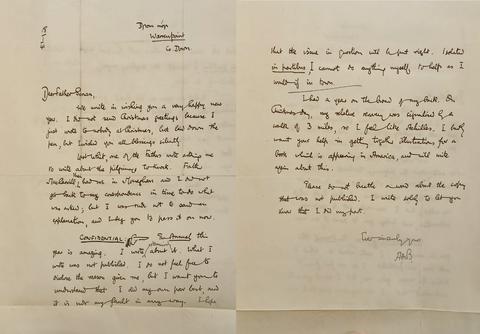 Warrenpoint
Co Down.
Dear Father Ronan,
We unite in wishing you a very happy new
year. I do not send Christmas greetings because I
just write to nobody at Christmas, but laid down the
pen, but I wished you all blessings silently.
Last what, one of the Fathers wrote asking me
to write about the pilgrimage to Knock. Father
had me in Monaghan and I did not
get back to my correspondence in time to do what
was asked, but I was rude not to send an
explanation, and I beg you to pass it on now.
CONFIDENTIAL: The Annual this
year is amazing. I wrote about it. What I
wrote was not published. I do not feel free to
disclose the reason given me, but I want you to
understand that I did my own poor best, and
it is not my fault in any way. I hope
that the issue in question will be put right. Isolated
in partibus I cannot do anything myself to help as I
would if in town.
I had a year on the broad of my back. On
Christmas day, my relative recovery was signalised by a
walk of 3 miles, so I feel like Achilles. I badly
want your help in getting together illustrations for a
book which is appearing in America, and will write
again about this.
Please do not breathe a word about the copy
that was not published. I write solely to let you
know that I did my part.
Ever sincerely yours,